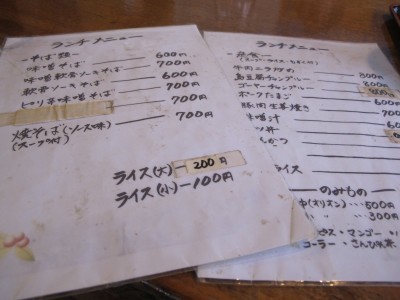 ランチメニュー
-そば類-
味噌そば 600円
味噌軟骨ソーキそば 700円
軟骨ソーキそば 600円
ピリ辛味噌そば 700円
700円
焼そば(ソース味) 700円
(スープ付)
ライス(大) 200円
ライス(小) 100円
ランチメニュー
牛肉ニラ炒め 800
島豆腐チャンプルー 800
ゴーヤーチャンプルー
ポークたまご
豚肉生姜焼き
味噌汁
ツ丼
かつ
イス
のみもの
中(オリオン) 500円
〃 300円
ピス・マンゴー
コーラー・さんぴん茶